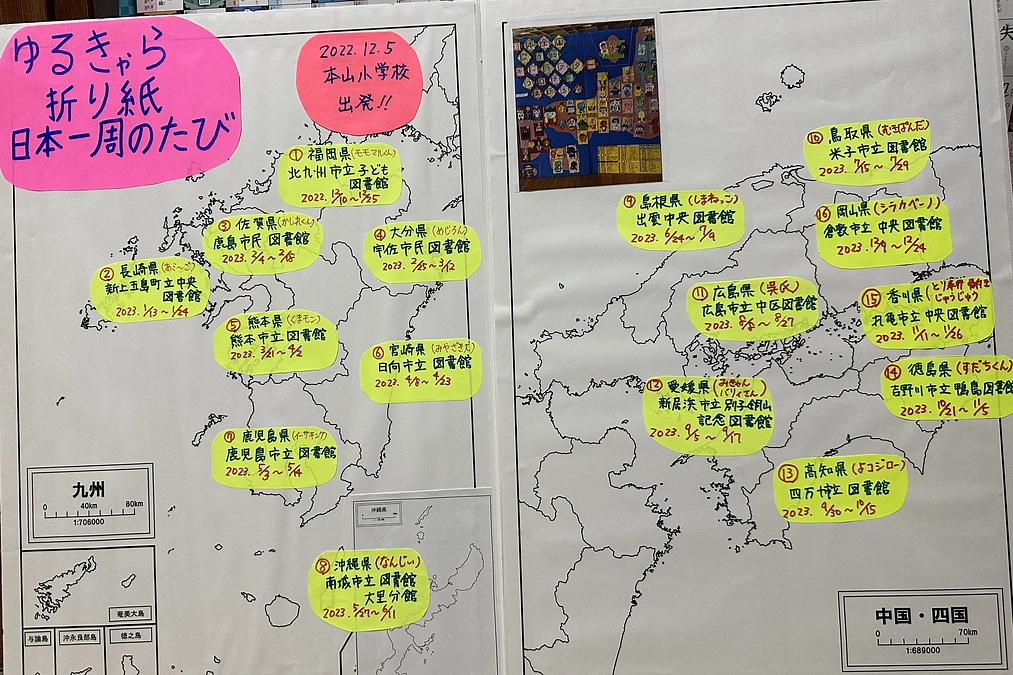 ゆるきゃら
折り紙
日本一周のたび
2022.12.5
本山小学校
出発!!
① 福岡県(モモマルくん)
北九州市立子ども
図書館
2022.12/10~12/25
③ 佐賀県(かしまくん)
鹿島市民 図書館
2023.2/4~2/18
④ 大分県(めじろん)
宇佐市民 図書館
2023.2/25~3/12
② 長崎県
新上五島町立中央
図書館
2023.1/13~1/24
⑤ 熊本県(くまモン)
熊本市立 図書館
2023.3/21~4/2
⑥ 宮崎県(みやざき犬)
日向市立 図書館
2023.4/8~4/23
⑦ 鹿児島県(イーサキング)
鹿児島市立 図書館
2023.5/3~5/14
⑧ 沖縄県(なんじぃ)
南城市立 図書館
大里分館
2023.5/27~6/11
九州
0 40km 80km
1:706000
沖縄県
奄美大島
与論島
沖永良部島
徳之島
⑩ 鳥取県(むきぱんだ)
米子市立図書館
2023.7/15~7/29
⑨ 島根県(しまねっこ)
出雲中央 図書館
2023.6/24~7/9
⑯ 岡山県(シラカベー)
倉敷市立 中央 図書館
2023.12/9~12/24
⑪ 広島県(呉氏)
広島市立中区図書館
2023.8/5~8/27
⑮ 香川県
じゅうじゅう)
丸亀市立 中央 図書館
2023.11/11~11/26
⑭ 徳島県(すだちくん)
吉野川市立 鴨島図書館
2023.10/21~11/5
⑫ 愛媛県(みきゃん
バリィさん)
新居浜市立 別子銅山
記念図書館
2023.9/5~9/17
⑬ 高知県(よコジロー)
四万十市立 図書館
2023.9/30~10/15
中国・四国
0 70km
1:689000